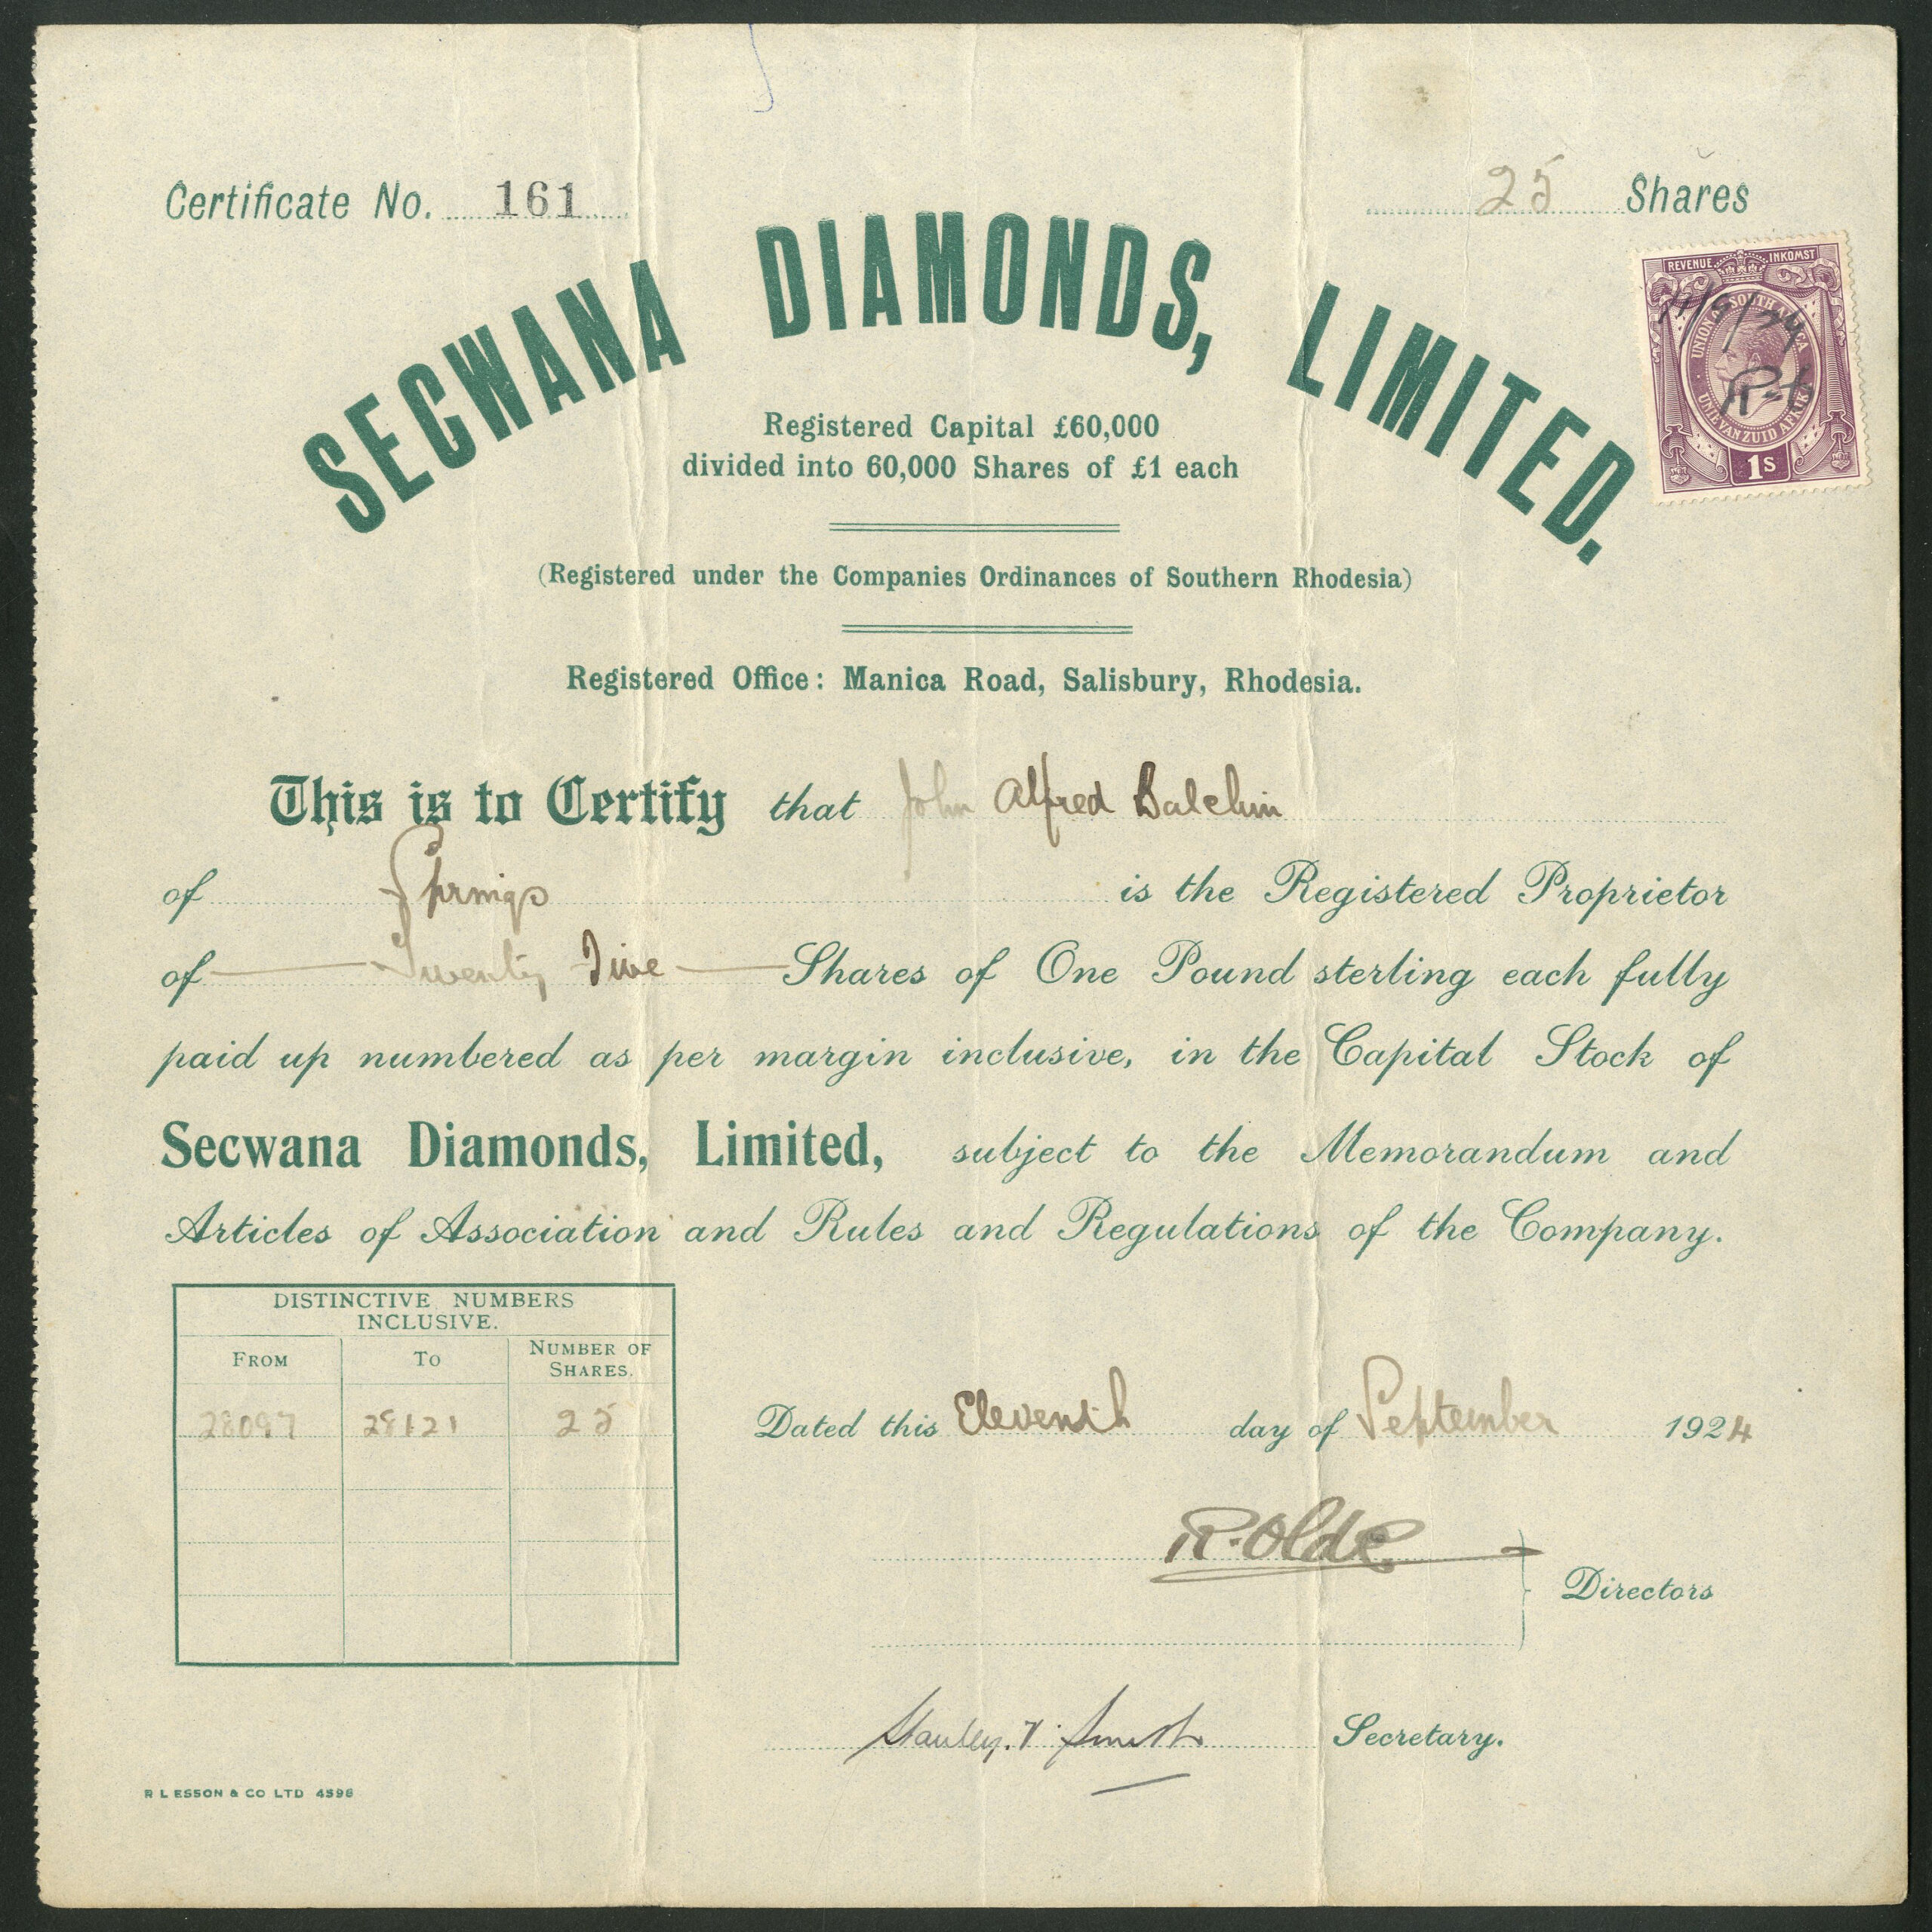 Certificate No. 161
25 Shares
SECWANA DIAMONDS, LIMITED.
REVENUE INKOMST
UNION OF SOUTH AFRICA
UNIE VAN ZUID AFRIKA
1s
Registered Capital £60,000
divided into 60,000 Shares of £1 each
(Registered under the Companies Ordinances of Southern Rhodesia)
Registered Office: Manica Road, Salisbury, Rhodesia.
This is to Certify that John Alfred Balchin
of Springs is the Registered Proprietor
of Twenty Five Shares of One Pound sterling each fully
paid up numbered as per margin inclusive, in the Capital Stock of
Secwana Diamonds, Limited, subject to the Memorandum and
Articles of Association and Rules and Regulations of the Company.
DISTINCTIVE NUMBERS
INCLUSIVE.
FROM TO NUMBER OF SHARES.
28097 28121 25
Dated this Eleventh day of September 1924
R. Olde
Directors
Stanley. Smith Secretary.
R L ESSON & CO LTD 4598